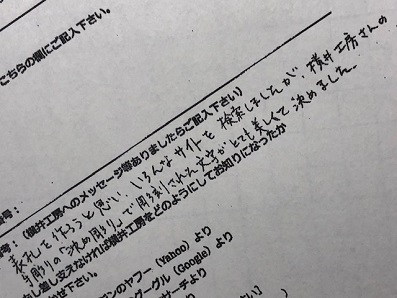 こちらの欄にご記入下さい。
番号：
番号：（横井工房へのメッセージ等ありましたらご記入下さい）
表札を作ろうと思い、いろんなサイトを検索しましたが、横井工房さんの
手彫りの「決め彫り」で彫刻された文字がとても美しくて決めました。
し差し支えなければ横井工房をどのようにしてお知りになったか
かせ下さい。
ンのヤフー（Yahoo）より
グーグル（Google）より
サーチより